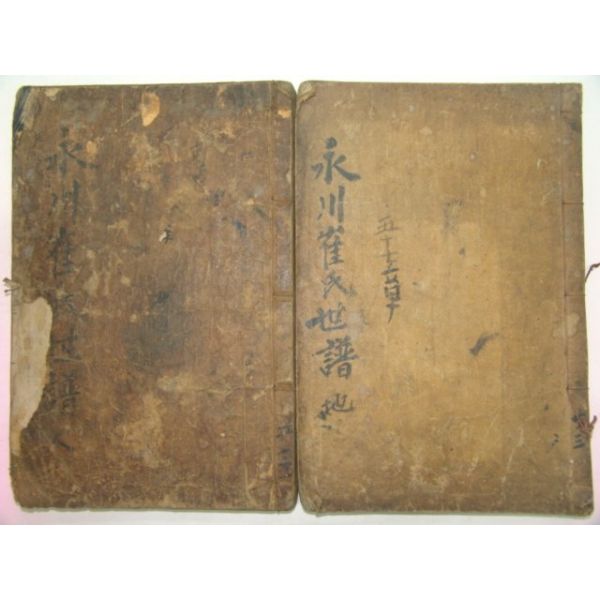 永川崔氏世譜 人
永川崔氏世譜 地
五十七章
共三